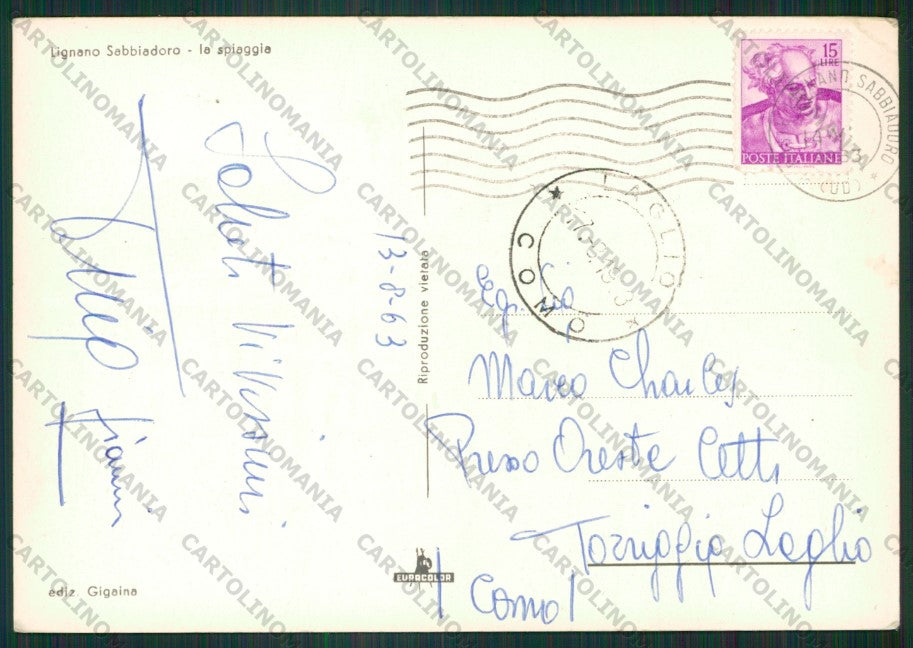 Lignano Sabbiadoro - la spiaggia
15
LIRE
POSTE ITALIANE
LIGNANO SABBIADORO
(UD)
LAGLIO
COMO
Saluti
13-8-63
Gianni
Riproduzione vietata
Marco Charles
Presso Oreste Cetti
Torriggia Laglio
(Como)
EUROCOLOR
ediz. Gigaina
CARTOLINOMANIA